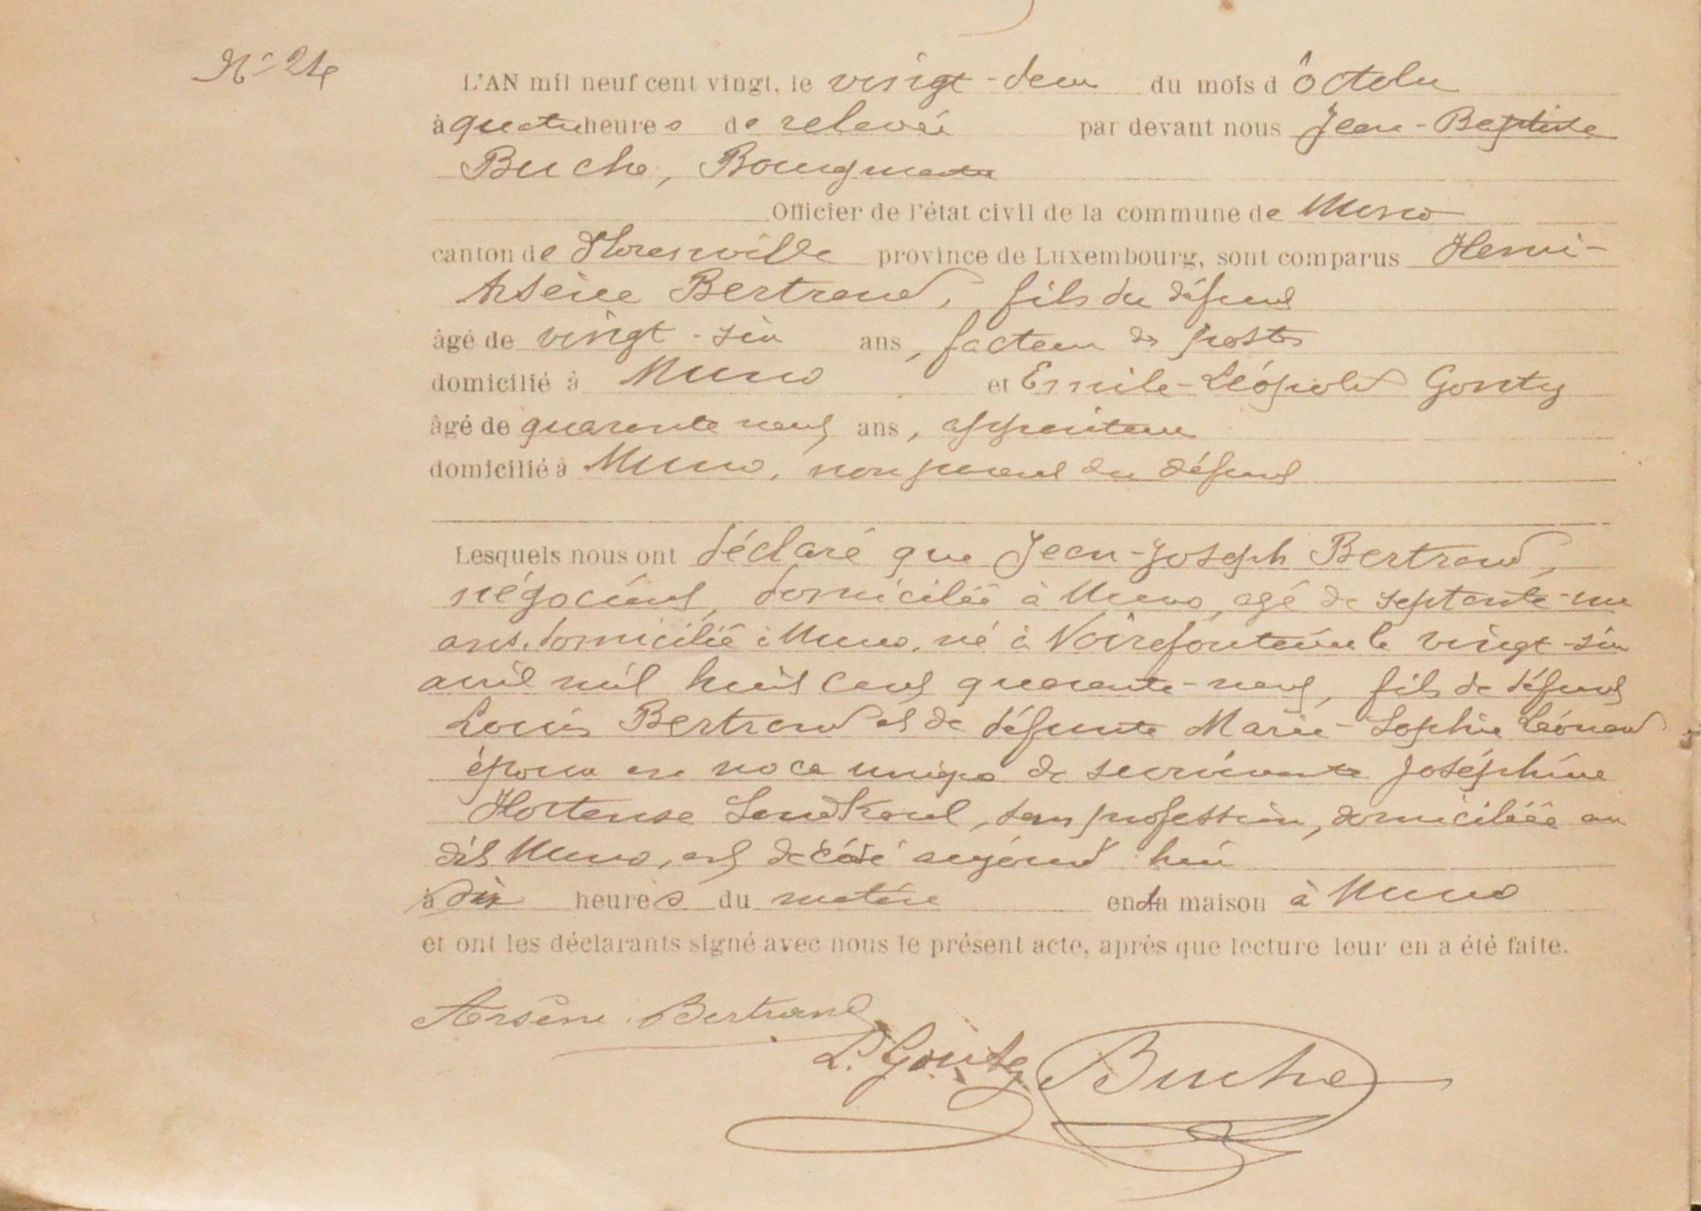 N° 24
L'AN mil neuf cent vingt, le vingt-deux du mois d'Octobre
à quatre heures de relevée par devant nous Jean-Baptiste
Buche, Bourgmestre
Officier de l'état civil de la commune de Muno
canton de Florenville province de Luxembourg, sont comparus Henri-
Arsène Bertrand, fils du défunt
âgé de vingt-six ans, facteur des postes
domicilié à Muno et Emile-Léopold Gonty
âgé de quarante neuf ans, appariteur
domicilié à Muno, non parent du défunt
Lesquels nous ont déclaré que Jean-Joseph Bertrand,
négociant, domicilié à Muno, agé de septante-un
ans, domicilié à Muno, né à Noirefontaine le vingt-six
avril mil huit cent quarante-neuf, fils de défunt
Louis Bertrand et de défunte Marie-Sophie Léonard
époux en noce unique de survivante Joséphine
Hortense , sans profession, domiciliée au
dit Muno, est décédé aujourd'hui
à dix heures du matin en sa maison à Muno
et ont les déclarants signé avec nous le présent acte, après que lecture leur en a été faite.
Arsène Bertrand
L. Gonty
Buche